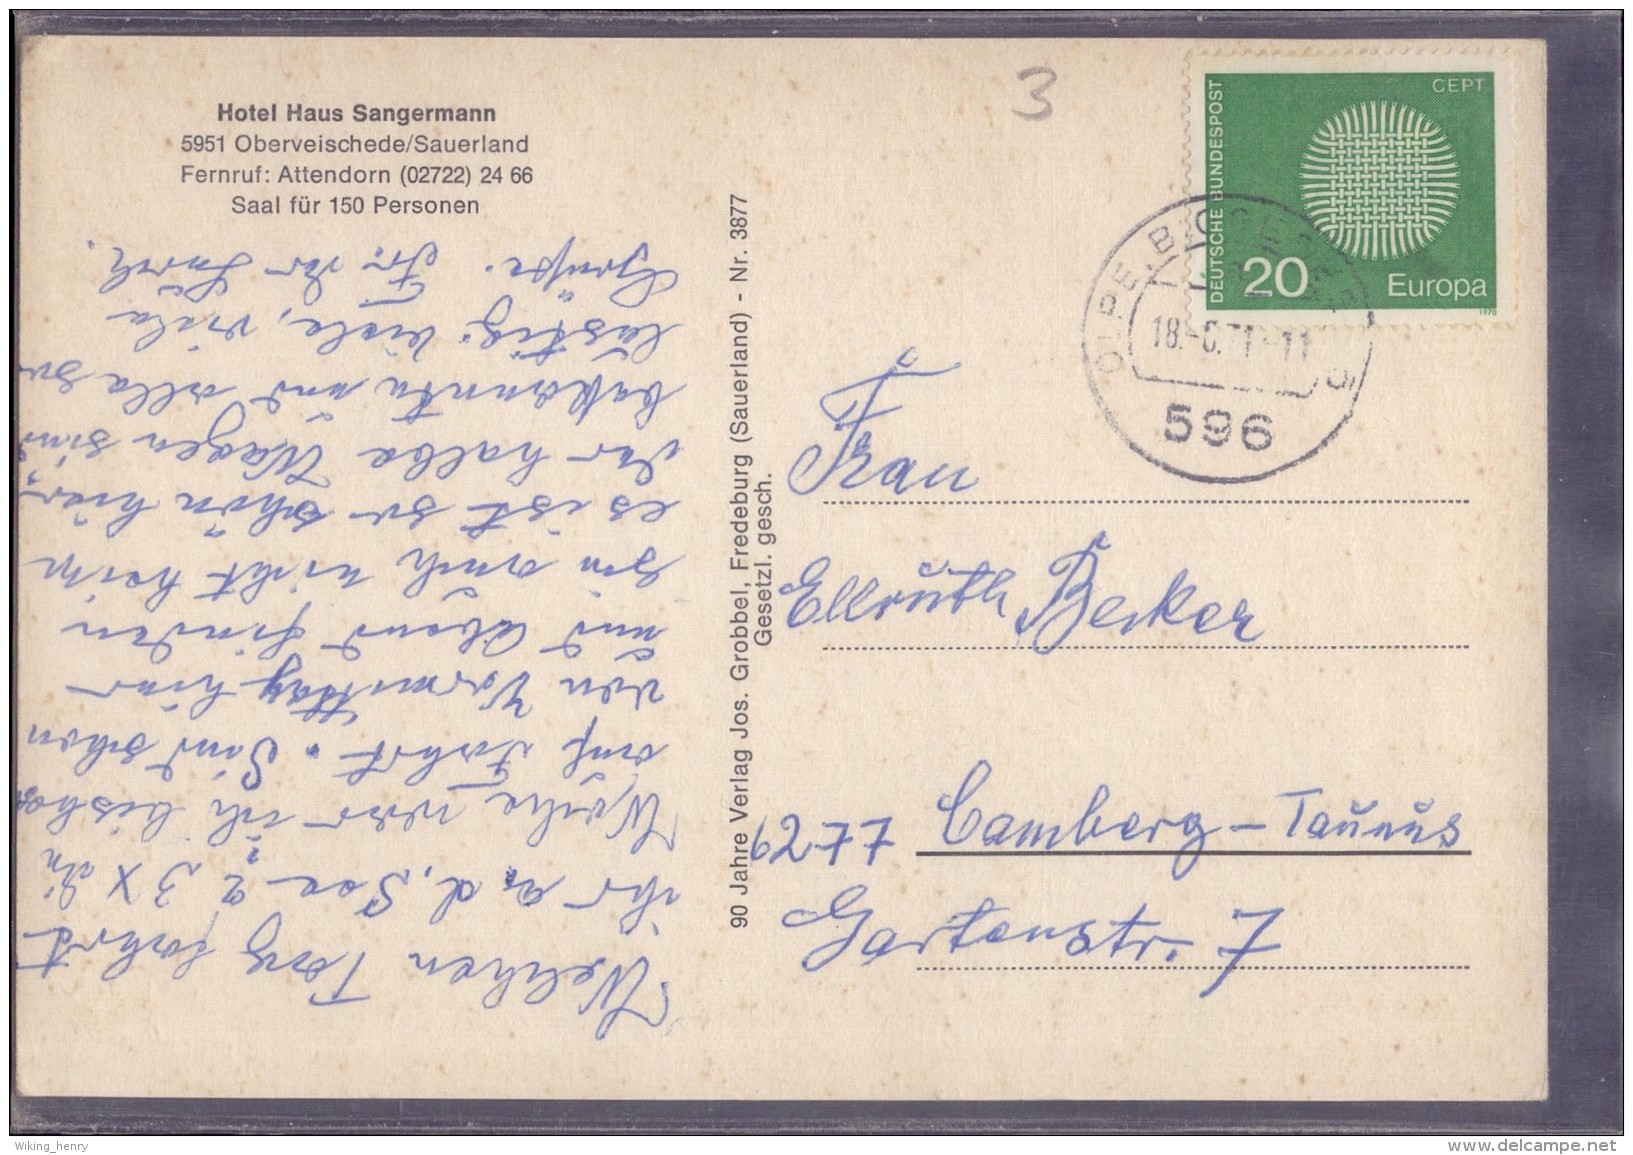 Hotel Haus Sangermann
5951 Oberveischede/Sauerland
Fernruf: Attendorn (02722) 24 66
Saal für 150 Personen
Welchen Tag fahrt
ihr a. d. See ? 3 x die
Woche war ich bisher
auf Fahrt. Sind schon
den Vormittag hier
und Abend finden
sie auch nicht heim
es ist so schön hier,
der halbe Wagen sind
bekannte und alle so
lustig. Viele, viele
Grüße. Fr.
90 Jahre Verlag Jos. Grobbel, Fredeburg (Sauerland) - Nr. 3877
Gesetzl. gesch.
3
CEPT
DEUTSCHE BUNDESPOST
20
Europa
1970
OLPE-BIGGESEE
596
Frau
Ellruth Becker
6277 Camberg-Taunus
Gartenstr. 7
Wiking_henry
www.delcampe.net